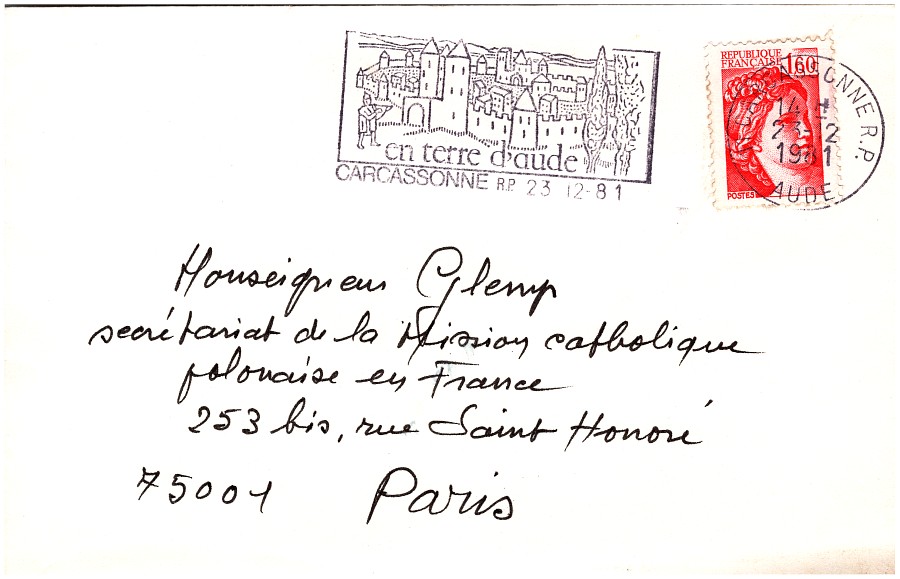 RÉPUBLIQUE
FRANÇAISE 1,60
POSTES
14 H
23-12
1981
AUDE
en terre d'aude
CARCASSONNE R.P. 23 12-81
Monseigneur Glemp
secrétariat de la Mission catholique
polonaise en France
253 bis, rue Saint Honoré
75001 Paris